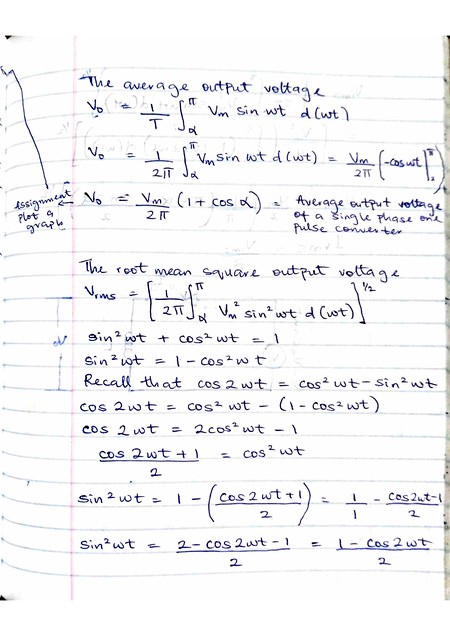 The average output voltage
V₀ = 1/T ∫_α^π Vm sin wt d(wt)
V₀ = 1/2π ∫_α^π Vm sin wt d(wt) = Vm/2π (-cos wt |_α^π
Assignment plot a graph ← V₀ = Vm/2π (1 + cos α) = Average output voltage of a single phase one pulse converter
The root mean square output voltage
Vrms = [1/2π ∫_α^π Vm² sin² wt d(wt)]^1/2
sin² wt + cos² wt = 1
sin² wt = 1 - cos² wt
Recall that cos 2wt = cos² wt - sin² wt
cos 2wt = cos² wt - (1 - cos² wt)
cos 2wt = 2cos² wt - 1
(cos 2wt + 1)/2 = cos² wt
sin² wt = 1 - ((cos 2wt + 1)/2) = 1/1 - (cos 2wt - 1)/2
sin² wt = (2 - cos 2wt - 1)/2 = (1 - cos 2wt)/2